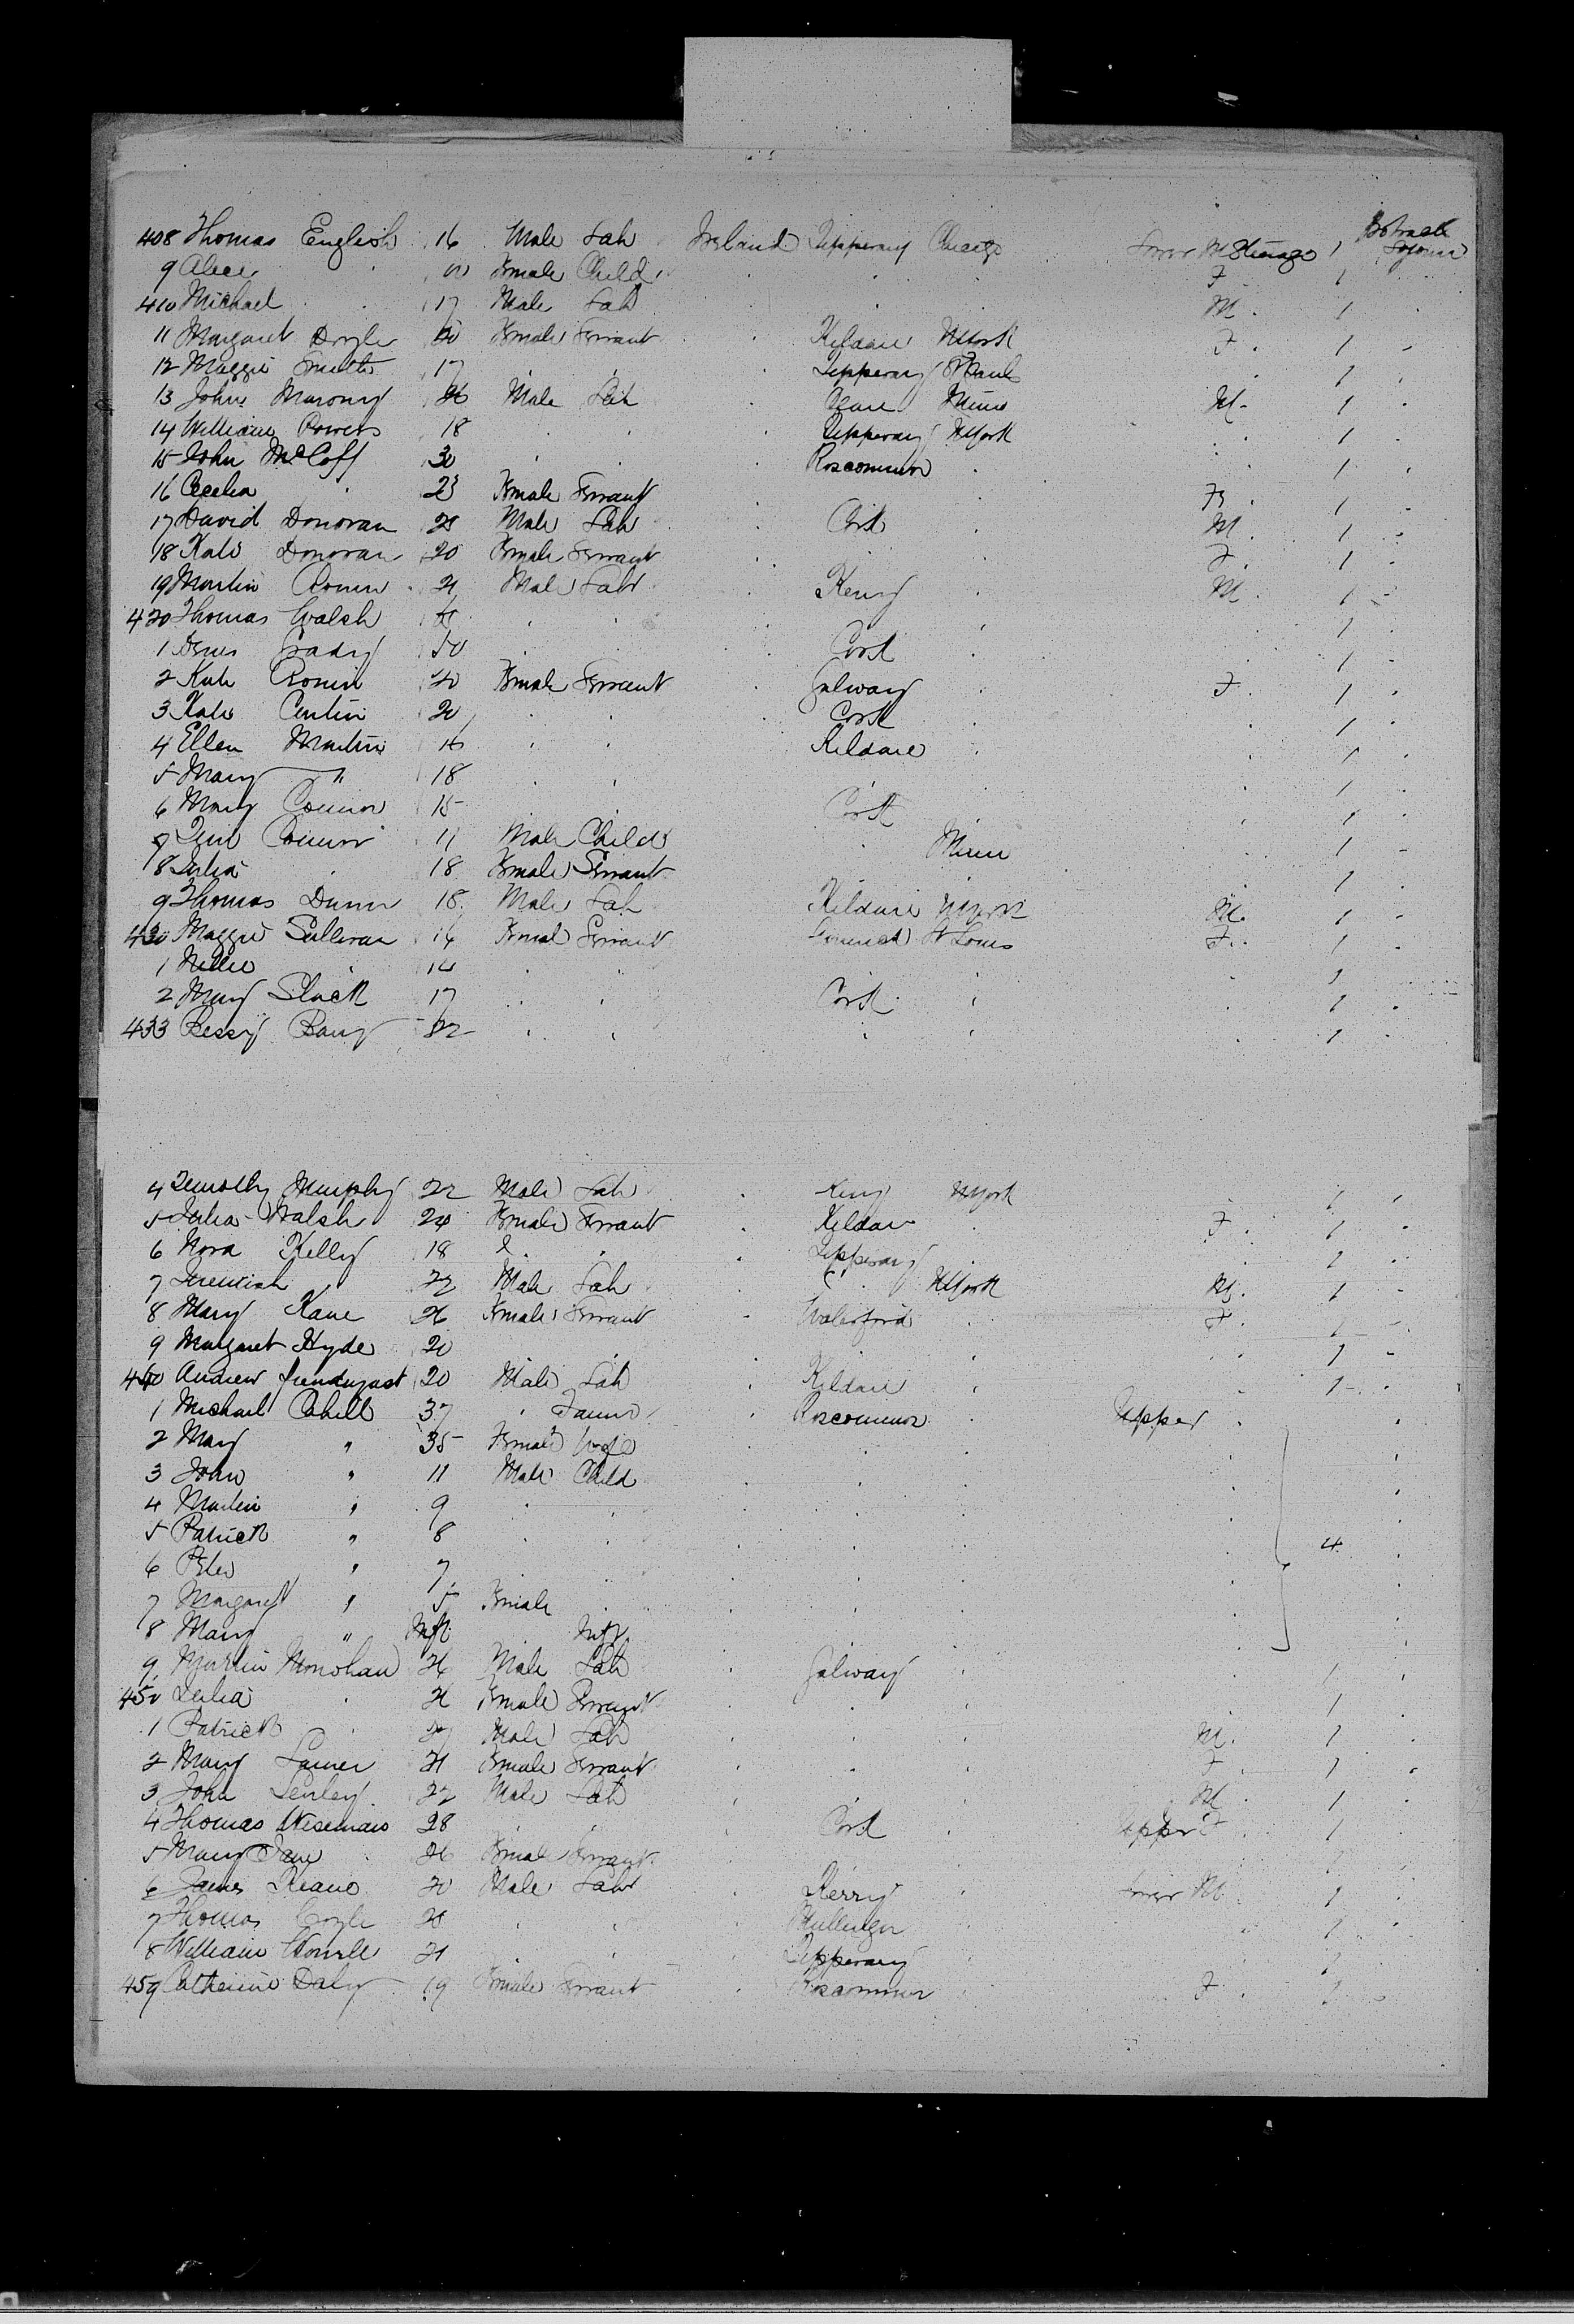 408 Thomas English 16 Male Lab Ireland Tipperary Chicago Lower M Steerage 1
9 Alice . Female Child . . . F . 1 .
410 Michael . 17 Male Lab . . . M . 1 .
11 Margaret Doyle 20 Female Servant . Kildare NYork F . 1 .
12 Maggie Smith 17 . . . Tipperary St Paul . 1 .
13 John Marony 26 Male Lab . Clare Minn M . 1 .
14 William Powers 18 . . . Tipperary NYork . . 1 .
15 John McCoff 30 . . . Roscommon . . . 1 .
16 Cecelia . 23 Female Servant . . . F . 1 .
17 David Donovan 28 Male Lab . Cork . M . 1 .
18 Kate Donovan 20 Female Servant . . . F . 1 .
19 Martin 21 Male Lab . Kerry . M . 1 .
420 Thomas Walsh . . . . . . 1 .
1 Denis Grady 50 . . . Cork . . 1 .
2 Kate Cronin 20 Female Servant . Galway . F . 1 .
3 Kate 20 . . . Cork . . 1 .
4 Ellen Martin 16 . . Kildare . . 1 .
5 Mary " 18 . . . . 1 .
6 Mary Connor 15 . . Cork . . 1 .
7 Connor 11 Male Child . Minn . 1 .
8 Julia . 18 Female Servant . 1 .
9 Thomas Dunn 18 Male Lab Kildare NYork M . 1 .
430 Maggie Sullivan 14 Female Servant Limerick St Louis F . 1 .
1 Nellie . 14 . . . . . 1 .
2 Mary Slack 17 . . Cork . . 1 .
433 Bessy Barry . . . . . 1 .
4 Timothy Murphy 22 Male Lab . Kerry NYork 1 .
5 Julia Walsh 24 Female Servant Kildare . F . 1 .
6 Nora Kelly 18 . . Tipperary . 1 .
7 Jeremiah . 22 Male Lab . NYork M . 1 .
8 Mary Kane 26 Female Servant . Waterford . F . 1 .
9 Margaret Hyde 20 . . . 1 .
440 Andrew Prendergast 20 Male Lab . Kildare . . 1 .
1 Michael Cahill 37 . Farmer . Roscommon . Upper . .
2 Mary " 35 Female Wife . . . . .
3 John " 11 Male Child . . . . .
4 Martin " 9 . . . . . . .
5 Patrick " 8 . . . . . . 4 .
6 Peter " 7 . . . . . . .
7 Margaret " 5 Female . . . . . .
8 Mary " Inft . Inft . . . . .
9 Martin Monohan 26 Male Lab . Galway . . 1 .
450 Julia . 26 Female Servant . . . . 1 .
1 Patrick . 27 Male Lab . . . M . 1 .
2 Mary 21 Female Servant . . . F . 1 .
3 John 22 Male Lab . . . M . 1 .
4 Thomas Wiseman 28 . . . Cork . Upper F . 1 .
5 Mary Jane . 26 Female Servant . . . . 1 .
6 James Keane 20 Male Lab . Kerry . Lower M . 1 .
7 Thomas Coyle 28 . . . Mullingar . " 1 .
8 William 21 . . . Tipperary . . 1 .
459 Catherine Daly 19 Female Servant . Roscommon . F . 1 .